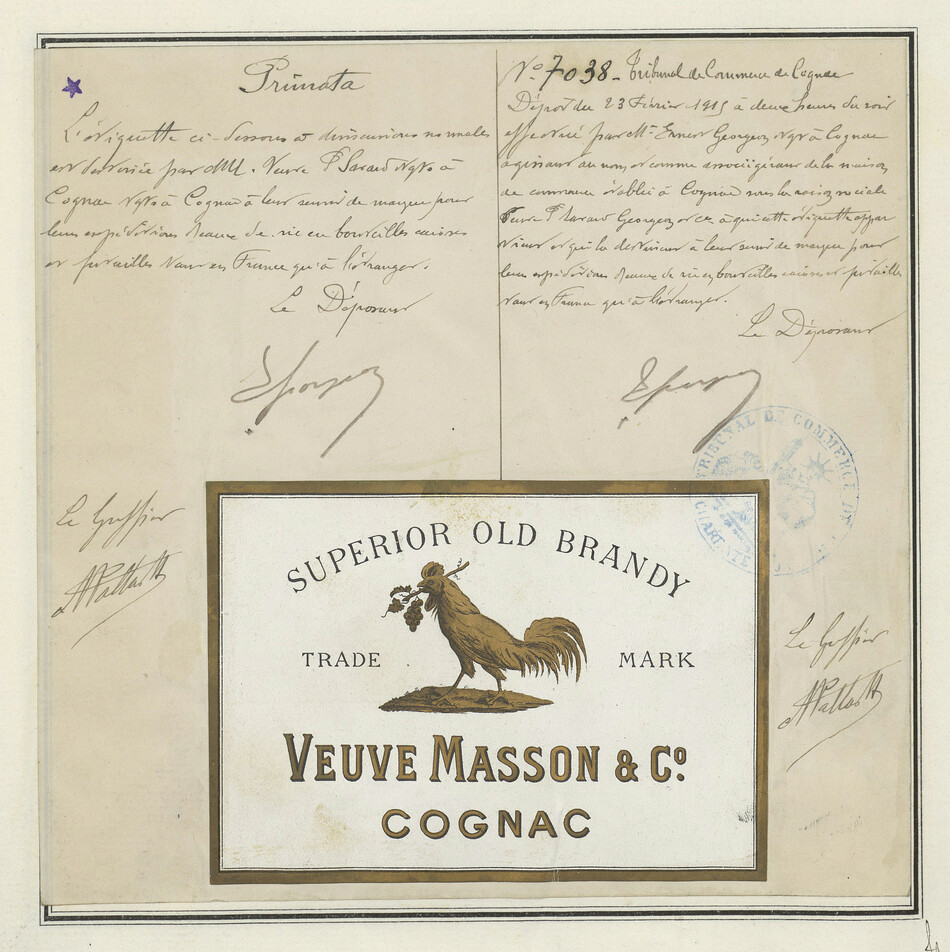 Primata
L'étiquette ci-dessous et dimensions normales
est destinée par MM. Veuve P. Sarazd Ngts à
Cognac Ngts à Cognac à leur servir de marque pour
leurs expéditions d'eaux de vie en bouteilles caisses
et futailles tant en France qu'à l'étranger.
Le Déposant
No 7038 - Tribunal de Commerce de Cognac
Dépôt du 23 Février 1915 à deux heures du soir
effectué par Mr. Ernest Georgeon Ngt à Cognac
agissant au nom et comme associé gérant de la maison
de commerce établie à Cognac sous la raison sociale
Veuve P. Georgeon et Cie à qui cette étiquette appar
tient et qui la destinent à leur servir de marque pour
leurs expéditions d'eaux de vie en bouteilles caisses et futailles
tant en France qu'à l'étranger.
Le Déposant
TRIBUNAL DE COMMERCE DE
CHARENTE
Le Greffier
SUPERIOR OLD BRANDY
TRADE MARK
VEUVE MASSON & Co.
COGNAC
Le Greffier